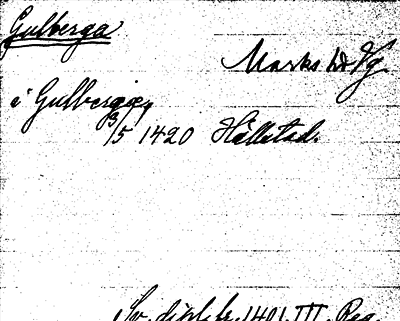 Gulberga
Marks hd Vg.
i Gulbergom
3/5 1420 Hällstad.
Sv. dipl. fr. 1401. III. Reg.